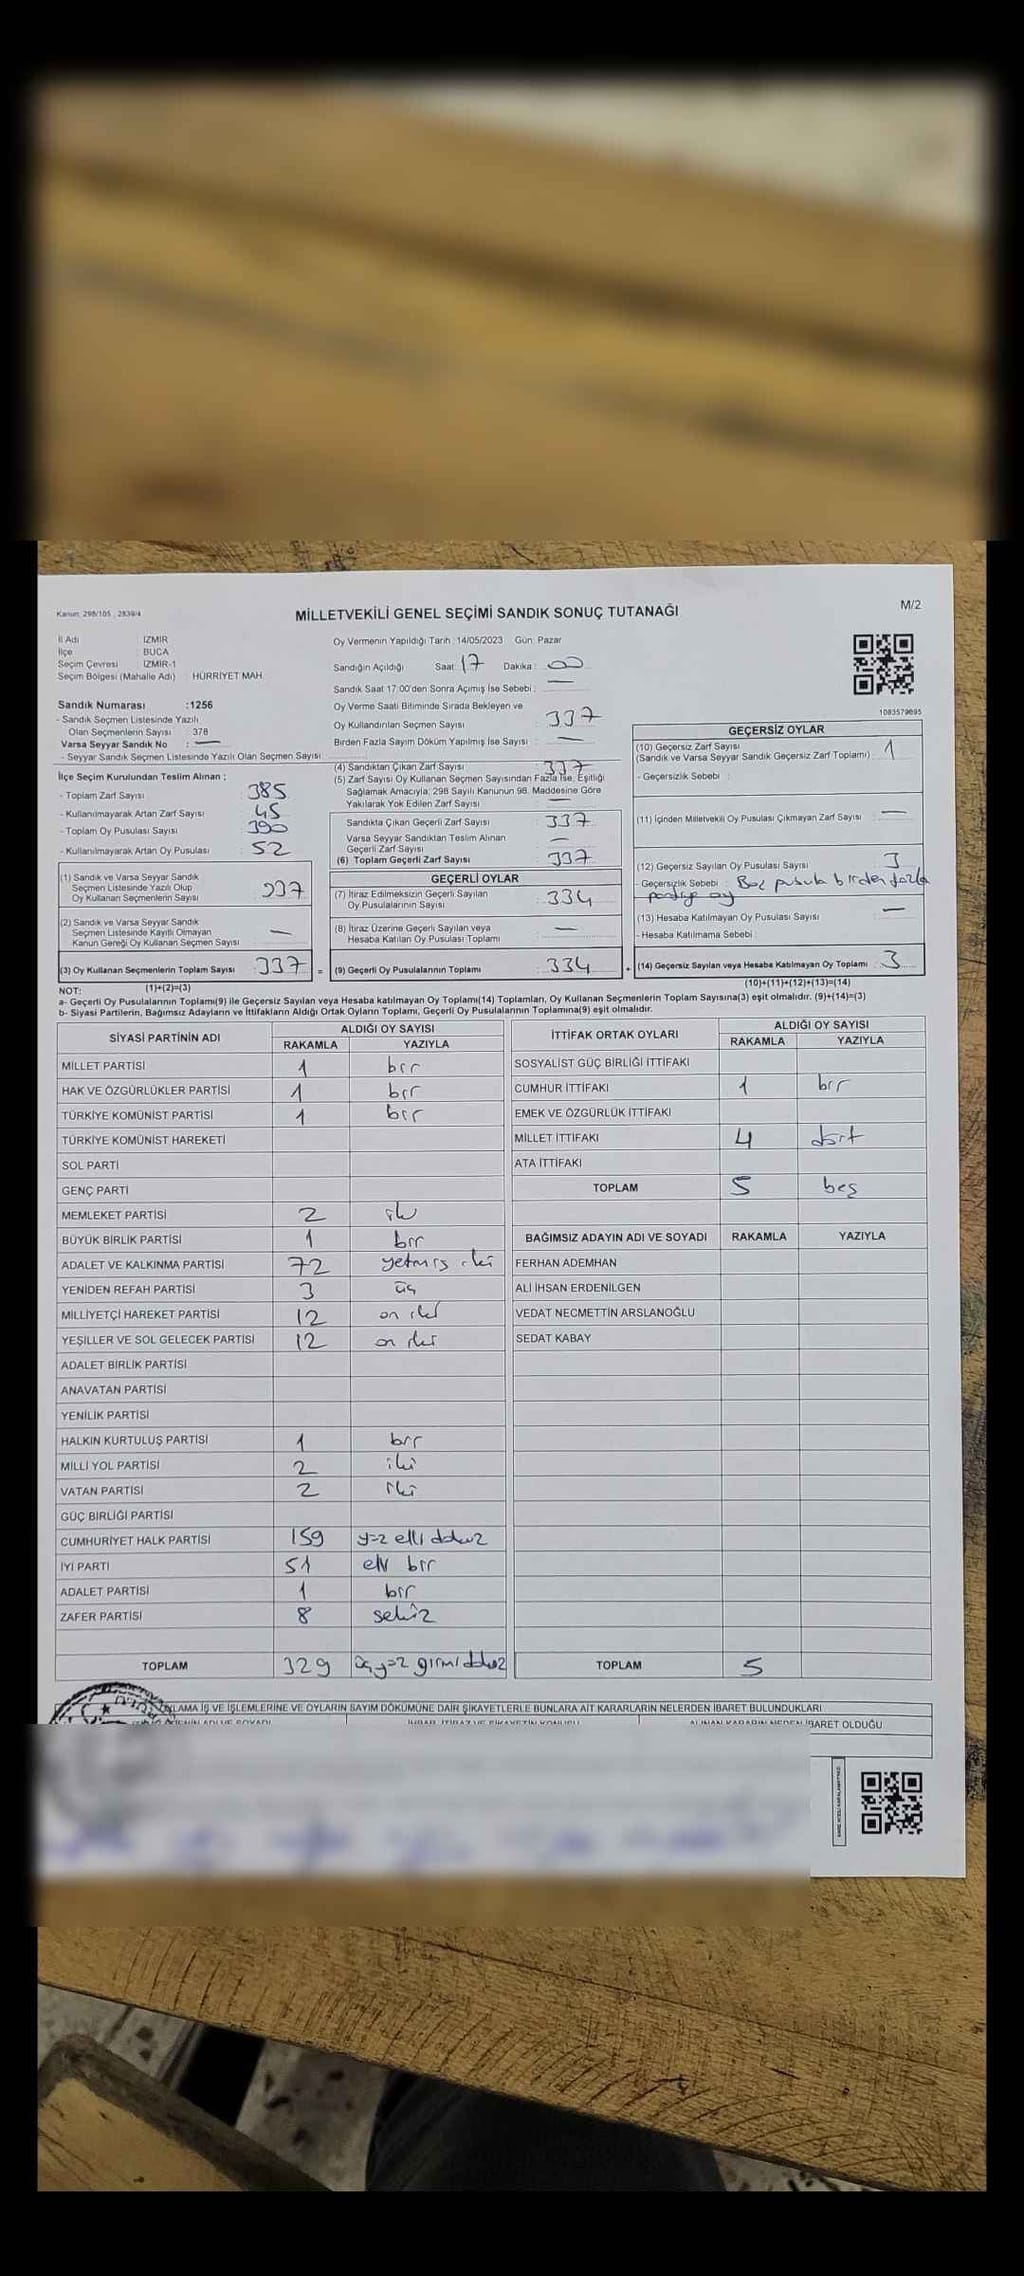 Kanun, 298/105 , 2839/4
MİLLETVEKİLİ GENEL SEÇİMİ SANDIK SONUÇ TUTANAĞI
M/2
İl Adı : İZMİR
İlçe : BUCA
Seçim Çevresi : İZMİR-1
Seçim Bölgesi (Mahalle Adı) HÜRRİYET MAH.
Sandık Numarası :1256
- Sandık Seçmen Listesinde Yazılı
Olan Seçmenlerin Sayısı 378
Varsa Seyyar Sandık No : —
- Seyyar Sandık Seçmen Listesinde Yazılı Olan Seçmen Sayısı
İlçe Seçim Kurulundan Teslim Alınan ;
- Toplam Zarf Sayısı 385
- Kullanılmayarak Artan Zarf Sayısı 45
- Toplam Oy Pusulası Sayısı 390
- Kullanılmayarak Artan Oy Pusulası 52
(1) Sandık ve Varsa Seyyar Sandık
Seçmen Listesinde Yazılı Olup
Oy Kullanan Seçmenlerin Sayısı 337
(2) Sandık ve Varsa Seyyar Sandık
Seçmen Listesinde Kayıtlı Olmayan
Kanun Gereği Oy Kullanan Seçmen Sayısı —
(3) Oy Kullanan Seçmenlerin Toplam Sayısı 337
Oy Vermenin Yapıldığı Tarih : 14/05/2023 Gün: Pazar
Sandığın Açıldığı Saat: 17 Dakika : 00
Sandık Saat 17:00'den Sonra Açımış İse Sebebi : —
Oy Verme Saati Bitiminde Sırada Bekleyen ve
Oy Kullandırılan Seçmen Sayısı : 337
Birden Fazla Sayım Döküm Yapılmış İse Sayısı : —
(4) Sandıktan Çıkan Zarf Sayısı : 337
(5) Zarf Sayısı Oy Kullanan Seçmen Sayısından Fazla İse, Eşitliği
Sağlamak Amacıyla; 298 Sayılı Kanunun 98. Maddesine Göre
Yakılarak Yok Edilen Zarf Sayısı —
Sandıkta Çıkan Geçerli Zarf Sayısı : 337
Varsa Seyyar Sandıktan Teslim Alınan
Geçerli Zarf Sayısı —
(6) Toplam Geçerli Zarf Sayısı : 337
GEÇERLİ OYLAR
(7) İtiraz Edilmeksizin Geçerli Sayılan
Oy Pusulalarının Sayısı : 334
(8) İtiraz Üzerine Geçerli Sayılan veya
Hesaba Katılan Oy Pusulası Toplamı —
= (9) Geçerli Oy Pusulalarının Toplamı 334
1083579695
GEÇERSİZ OYLAR
(10) Geçersiz Zarf Sayısı
(Sandık ve Varsa Seyyar Sandık Geçersiz Zarf Toplamı) : 1
- Geçersizlik Sebebi :
(11) İçinden Milletvekili Oy Pusulası Çıkmayan Zarf Sayısı —
(12) Geçersiz Sayılan Oy Pusulası Sayısı 3
- Geçersizlik Sebebi : pusula birden fazla
partiye oy
(13) Hesaba Katılmayan Oy Pusulası Sayısı —
- Hesaba Katılmama Sebebi :
+ (14) Geçersiz Sayılan veya Hesaba Katılmayan Oy Toplamı : 3
NOT: (1)+(2)=(3)
(10)+(11)+(12)+(13)=(14)
a- Geçerli Oy Pusulalarının Toplamı(9) ile Geçersiz Sayılan veya Hesaba katılmayan Oy Toplamı(14) Toplamları, Oy Kullanan Seçmenlerin Toplam Sayısına(3) eşit olmalıdır. (9)+(14)=(3)
b- Siyasi Partilerin, Bağımsız Adayların ve İttifakların Aldığı Ortak Oyların Toplamı, Geçerli Oy Pusulalarının Toplamına(9) eşit olmalıdır.
SİYASİ PARTİNİN ADI
ALDIĞI OY SAYISI
RAKAMLA YAZIYLA
MİLLET PARTİSİ 1 bir
HAK VE ÖZGÜRLÜKLER PARTİSİ 1 bir
TÜRKİYE KOMÜNİST PARTİSİ 1 bir
TÜRKİYE KOMÜNİST HAREKETİ
SOL PARTİ
GENÇ PARTİ
MEMLEKET PARTİSİ 2 iki
BÜYÜK BİRLİK PARTİSİ 1 bir
ADALET VE KALKINMA PARTİSİ 72 yetmiş iki
YENİDEN REFAH PARTİSİ 3 üç
MİLLİYETÇİ HAREKET PARTİSİ 12 on iki
YEŞİLLER VE SOL GELECEK PARTİSİ 12 on iki
ADALET BİRLİK PARTİSİ
ANAVATAN PARTİSİ
YENİLİK PARTİSİ
HALKIN KURTULUŞ PARTİSİ 1 bir
MİLLİ YOL PARTİSİ 2 iki
VATAN PARTİSİ 2 iki
GÜÇ BİRLİĞİ PARTİSİ
CUMHURİYET HALK PARTİSİ 159 yüz elli dokuz
İYİ PARTİ 51 elli bir
ADALET PARTİSİ 1 bir
ZAFER PARTİSİ 8 sekiz
TOPLAM 329 üç yüz girmi dokuz
İTTİFAK ORTAK OYLARI
ALDIĞI OY SAYISI
RAKAMLA YAZIYLA
SOSYALİST GÜÇ BİRLİĞİ İTTİFAKI
CUMHUR İTTİFAKI 1 bir
EMEK VE ÖZGÜRLÜK İTTİFAKI
MİLLET İTTİFAKI 4 dört
ATA İTTİFAKI
TOPLAM 5 beş
BAĞIMSIZ ADAYIN ADI VE SOYADI RAKAMLA YAZIYLA
FERHAN ADEMHAN
ALİ İHSAN ERDENİLGEN
VEDAT NECMETTİN ARSLANOĞLU
SEDAT KABAY
TOPLAM 5
LAMA İŞ VE İŞLEMLERİNE VE OYLARIN SAYIM DÖKÜMÜNE DAİR ŞİKAYETLERLE BUNLARA AİT KARARLARIN NELERDEN İBARET BULUNDUKLARI
İHBAR, İTİRAZ VE ŞİKAYETİN KONUSU
ALINAN KARARIN NEDEN İBARET OLDUĞU